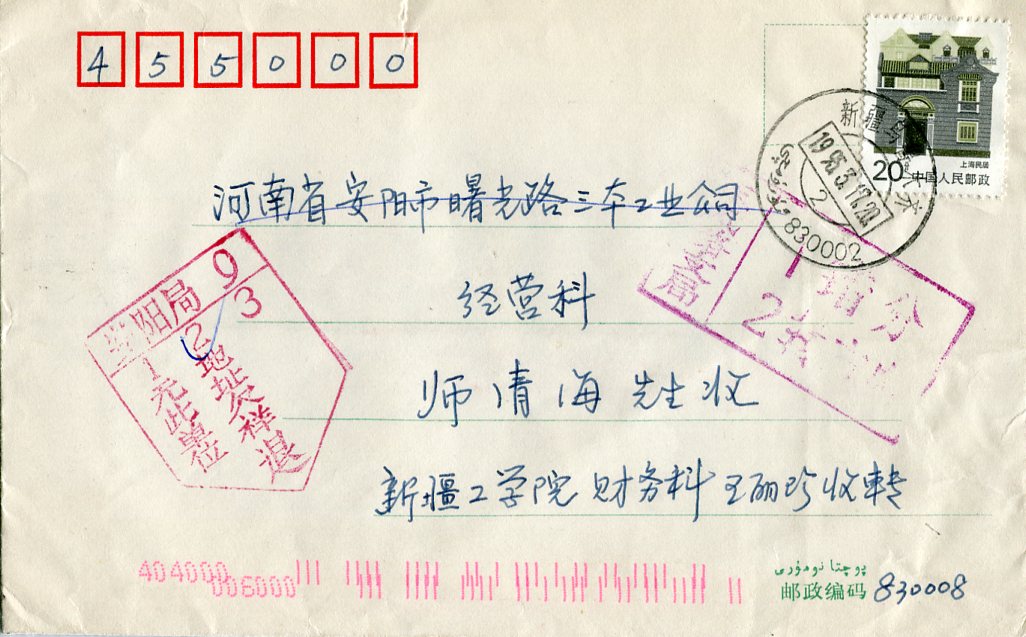 455000
上海民居
20 中国人民邮政
新疆
1995.3.17.20
2
830002
河南省安阳市曙光路三车工业公司
经营科
师清海 先生收
新疆工学院 财务科 王丽珍收转
安阳局 9
3
1元此单位
2地址欠祥退
2
404000
006000
پوچتا نومۇرى
邮政编码 830008